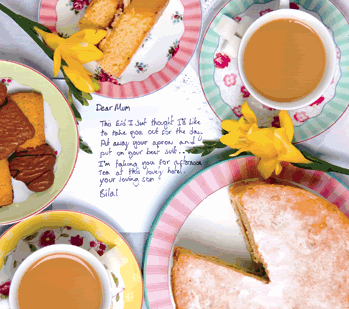 Dear Mum
This Eid I Just thought I'd like
to take you out for the day.
Put away your apron and
put on your best suit.
I'm taking you for afternoon
Tea at this lovely hotel.
your loving son
Bilal